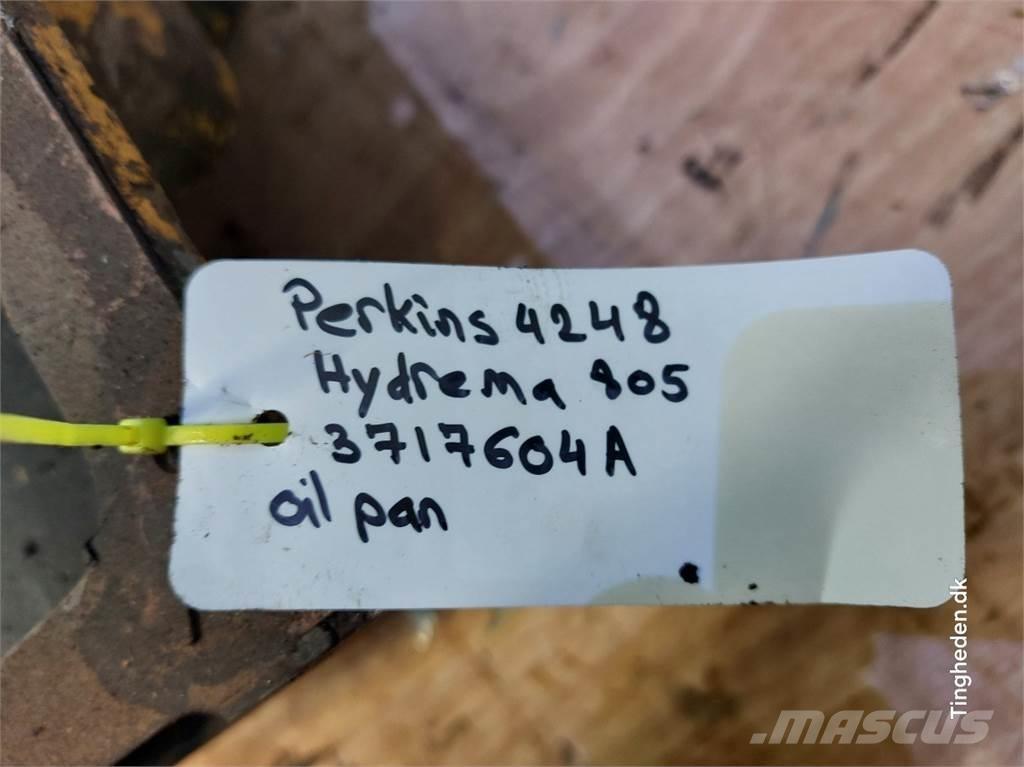 Perkins 4248
Hydrema 805
3717604A
oil pan
Tingheden.dk
MASCUS